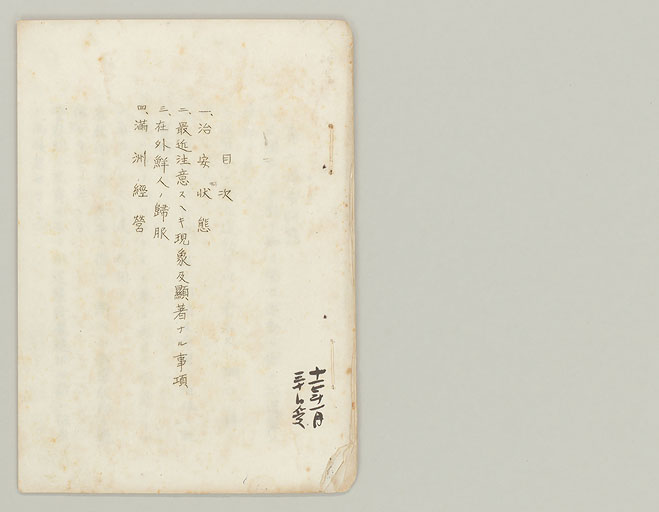 目次
一、治安狀態
二、最近注意スヘキ現象及顯著ナル事項
三、在外鮮人ノ歸服
四、滿洲經營
十一年一月